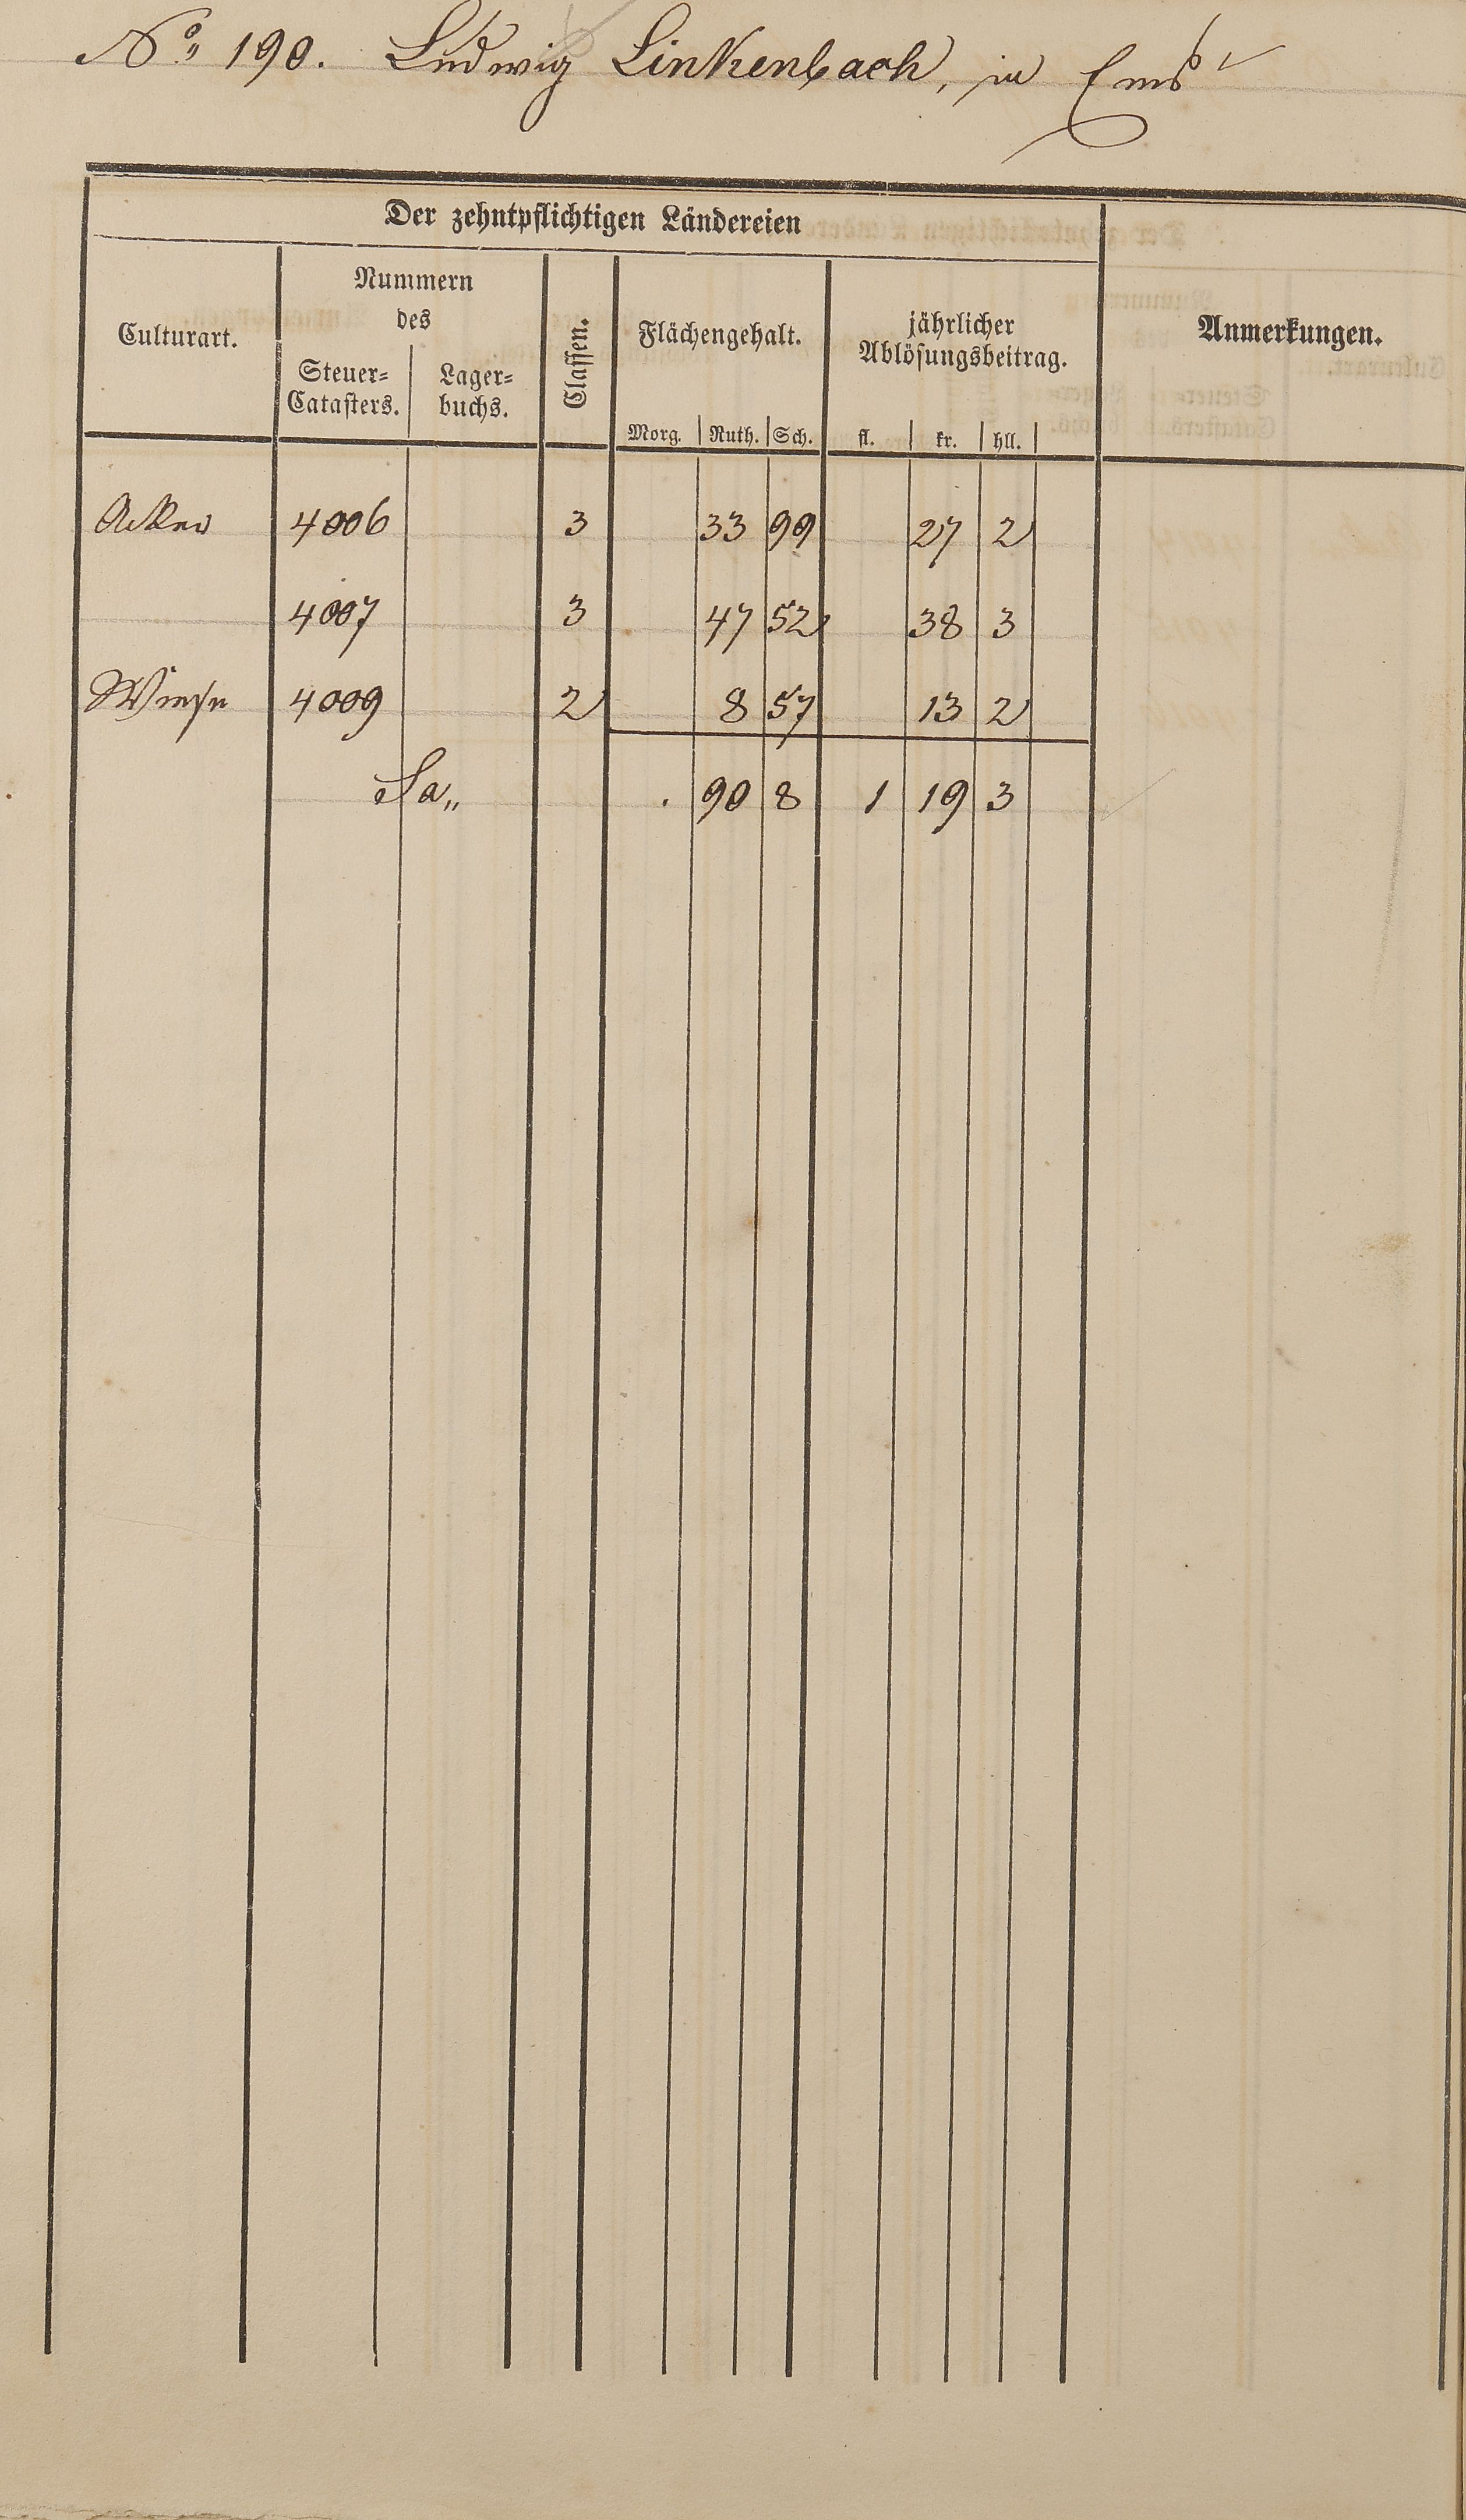 No. 190. Ludwig Linkenbach, in Ems
Der zehntpflichtigen Ländereien
Culturart.
Nummern
des
Steuer=
Catasters.
Lager=
buchs.
Classen.
Flächengehalt.
Morg. Ruth. Sch.
jährlicher
Ablösungsbeitrag.
fl. kr. hll.
Anmerkungen.
Acker 4006 3 33 99 27 2
4007 3 47 52 38 3
Wiese 4009 2 8 57 13 2
Sa,, . 90 8 1 19 3